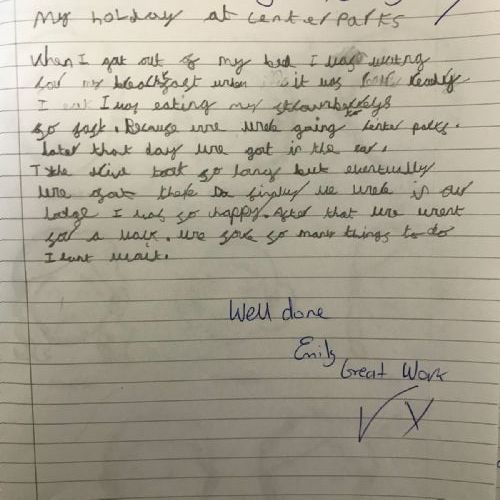 My holday at center Parks
When I got out of my bed I was waiting
for my breakfast when it was ready
I I was eating my
so fast. Because we were going center parks.
later that day we got in the car.
The drive took so long but eventually
we got there Da finally we were in our
lodge I was so happy. After that we went
for a walk. we have so many things to do
I cant wait.
Well done
Emily
Great Work